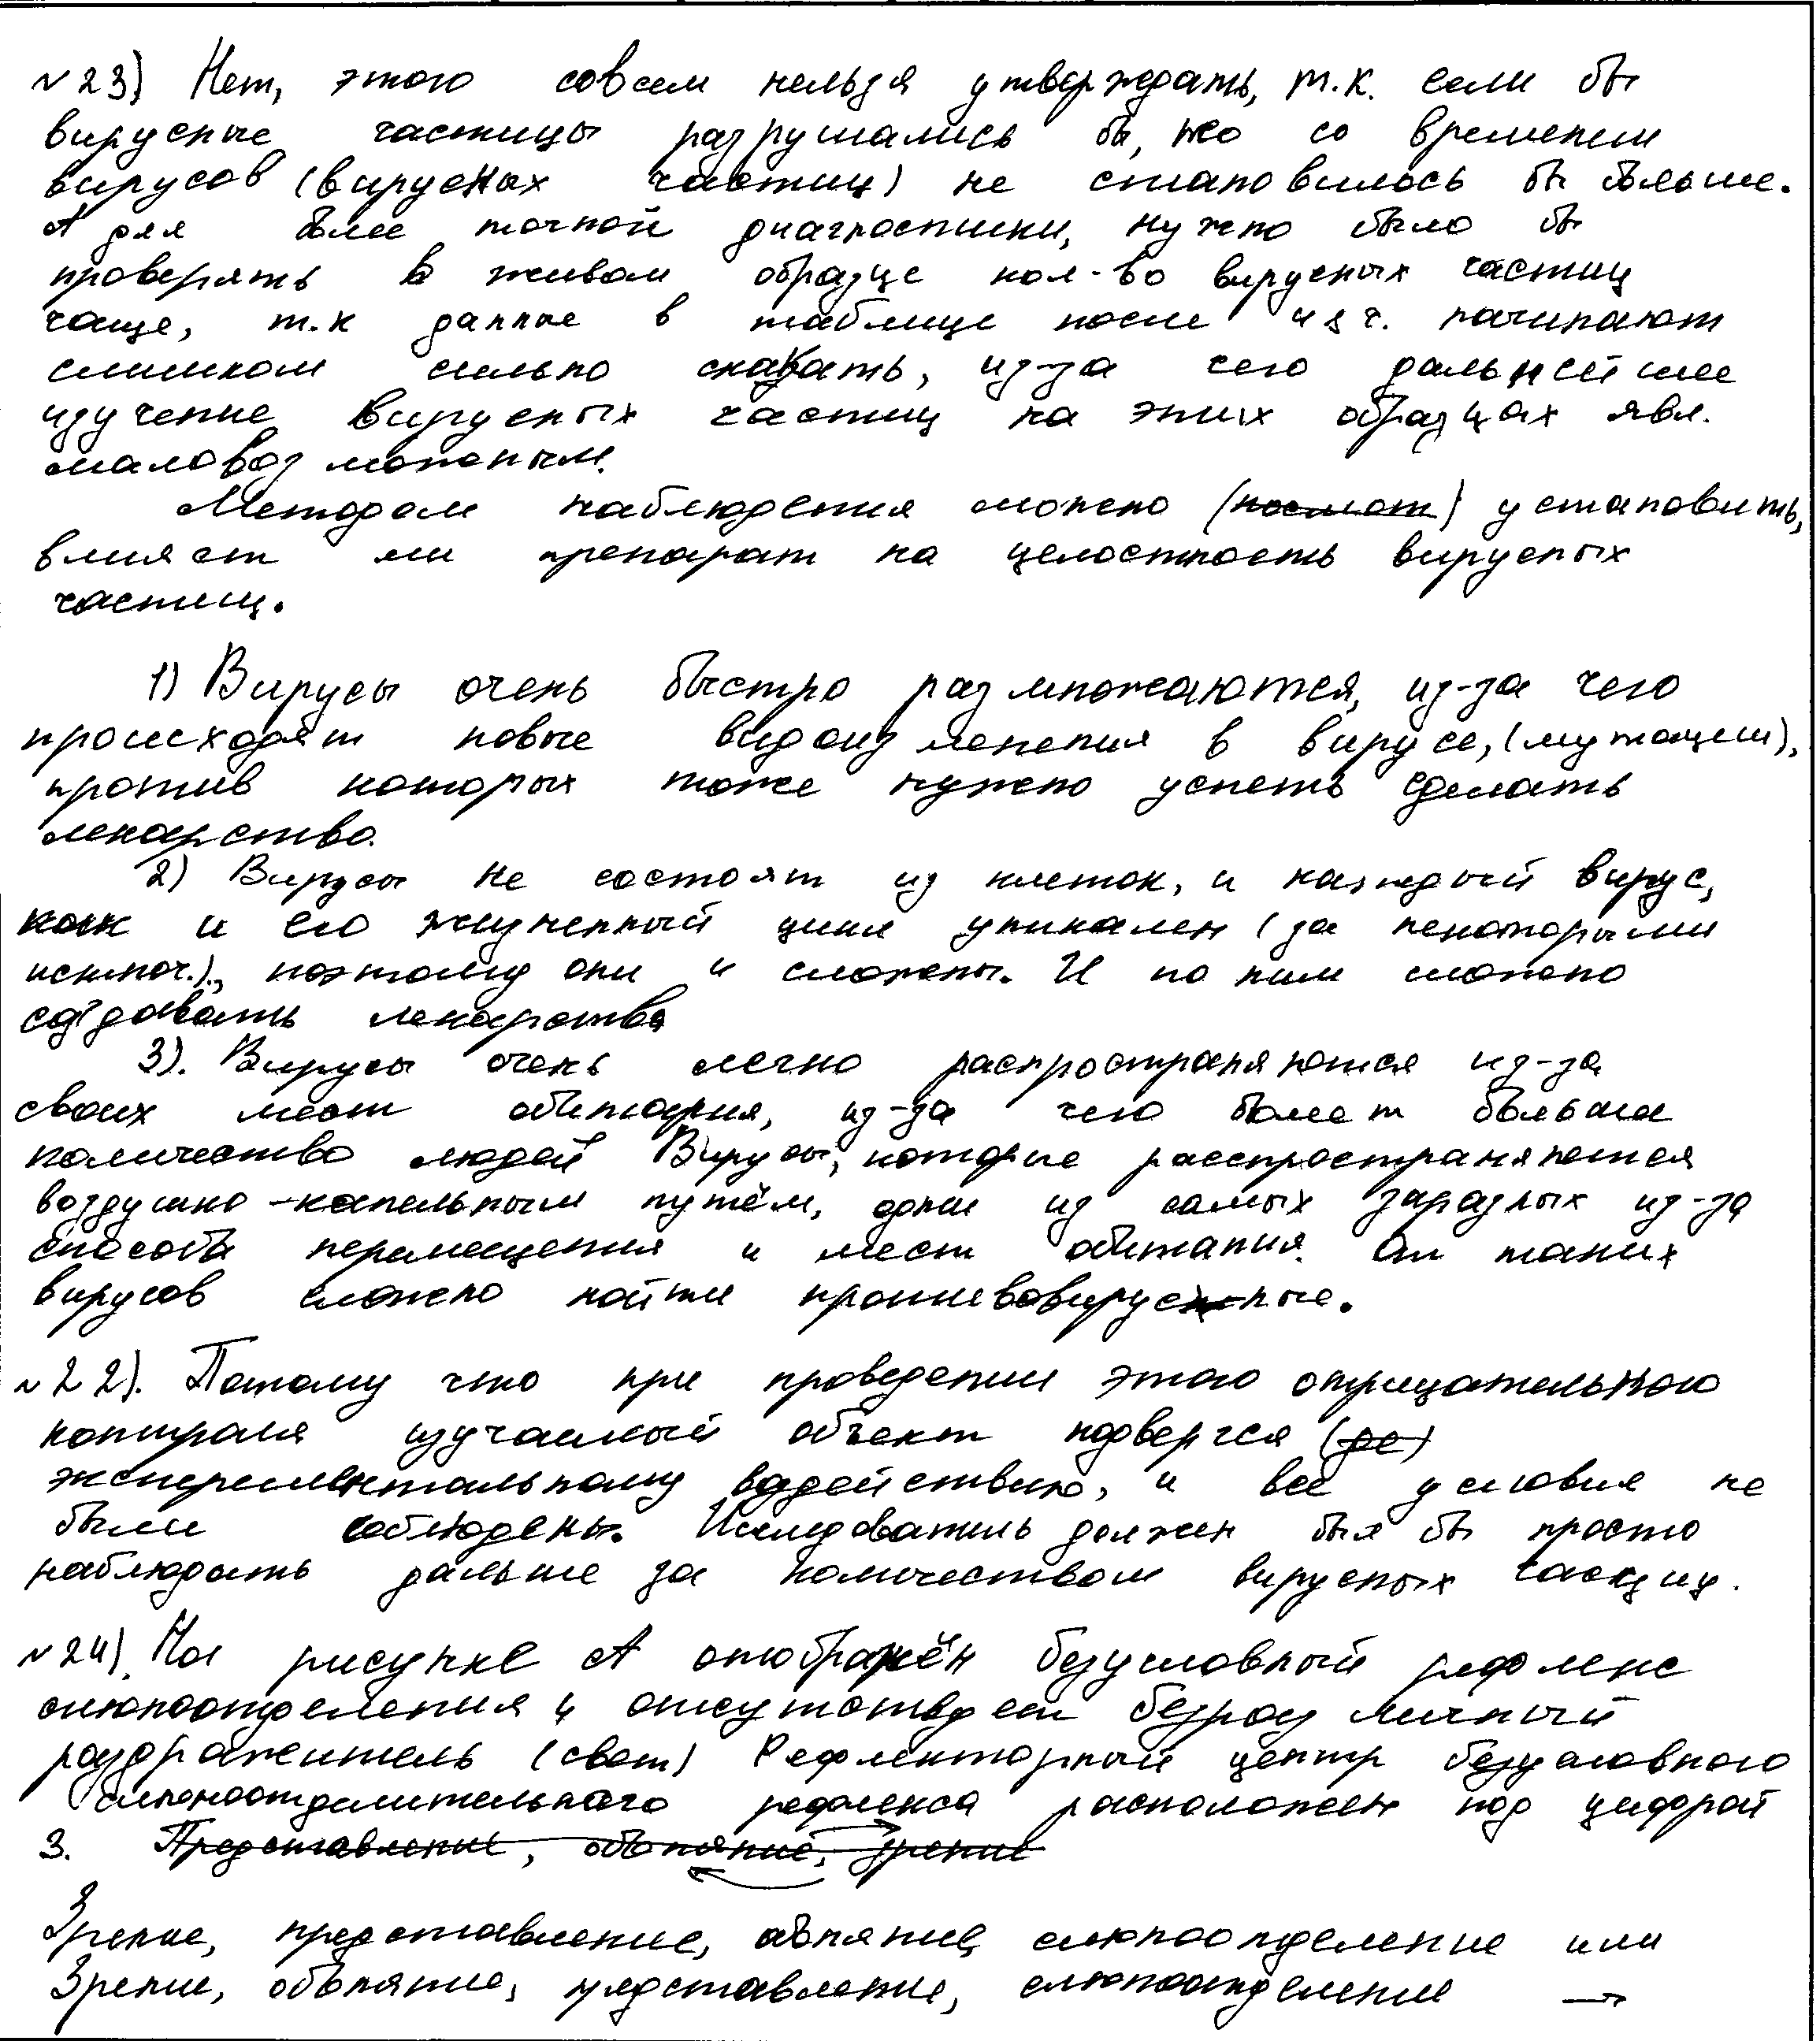 №23) Нет, этого совсем нельзя утверждать, т.к. если бы
вирусные частицы разрушались бы, то со временем
вирусов (вирусных частиц) не становилось бы больше.
А для более точной диагностики, нужно было бы
проверять в живом образце кол-во вирусных частиц
чаще, т.к данные в таблице после 48 ч. начинают
слишком сильно скакать, из-за чего дальнейшее
изучение вирусных частиц на этих образцах явл.
маловозможным.
Методом наблюдения можно (посмот) установить,
влияет ли препарат на целостность вирусных
частиц.
1) Вирусы очень быстро размножаются, из-за чего
происходят новые видоизменения в вирусе, (мутации),
против которых тоже нужно успеть сделать
лекарство.
2) Вирусы не состоят из клеток, и каждый вирус,
как и его жизненный цикл уникален (за некоторыми
исключ.), поэтому они и сложены. И по ним сложно
создавать лекарства
3). Вирусы очень легко распространяются из-за
своих мест обитания, из-за чего болеет больше
количество людей Вирусы, которые расспространяются
воздушно-капельным путём, одни из самых заразных из-за
способа перемещения и мест обитания. От таких
вирусов сложно найти противовирусные.
№22). Потому что при проведении этого отрицательного
контроля изучаемый объект подвергся (ре)
эксперементальному воздействию, и все условия не
были соблюдены. Исследователь должен был бы просто
наблюдать дальше за количеством вирусных частиц.
№24). На рисунке А отображён безусловный рефлекс
слюноотделения и отсутствует безразличный
раздражитель (свет) Рефлекторный центр безусловного
слюноотделительного рефлекса расположен под цифрой
3. Представление, обоняние, зрение
Зрение, представление, обоняние, слюноотделение или
Зрение, обоняние, представление, слюноотделение →